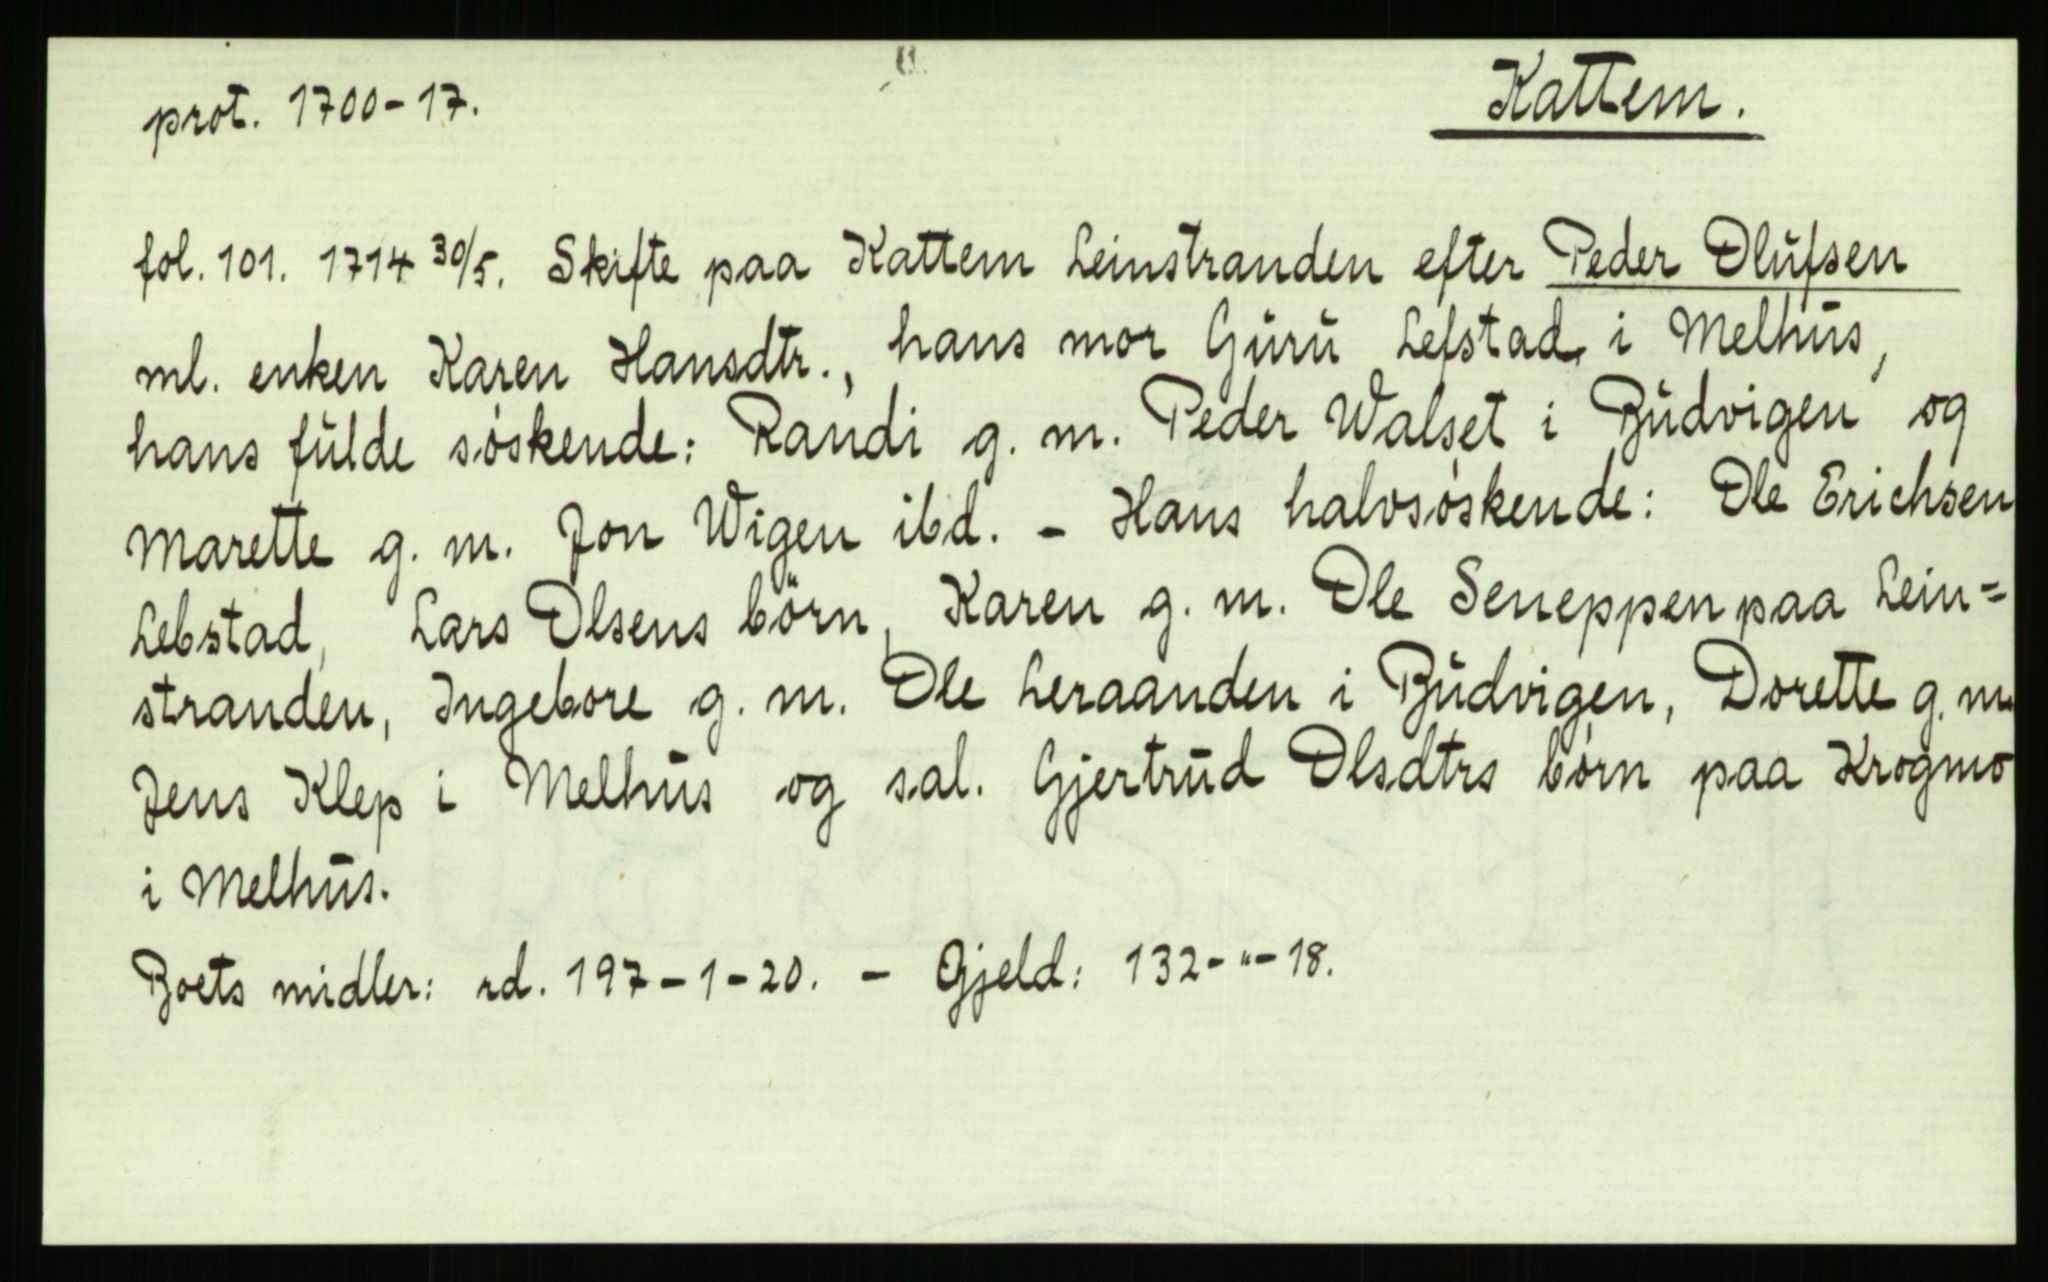 prot. 1700-17.
Kattem.
fol. 101. 1714 30/5. Skifte paa Kattem Leinstranden efter Peder Olufsen
ml. enken Karen Hansdtr., hans mor Guru Lefstad, i Melhus,
hans fulde søskende: Randi g. m. Peder Walset i Budvigen og
Marette g. m. Jon Wigen ibd. - Hans halvsøskende: Ole Erichsen
Lebstad, Lars Olsens börn, Karen g. m. Ole Seneppen paa Lein=
stranden, Ingebore g. m. Ole Leraanden i Budvigen, Dorette g. m.
Jens Klep i Melhus og sal. Gjertrud Olsdtrs børn paa Krogmo
i Melhus.
Boets midler: rd. 197-1-20. - Gjeld: 132-"-18.